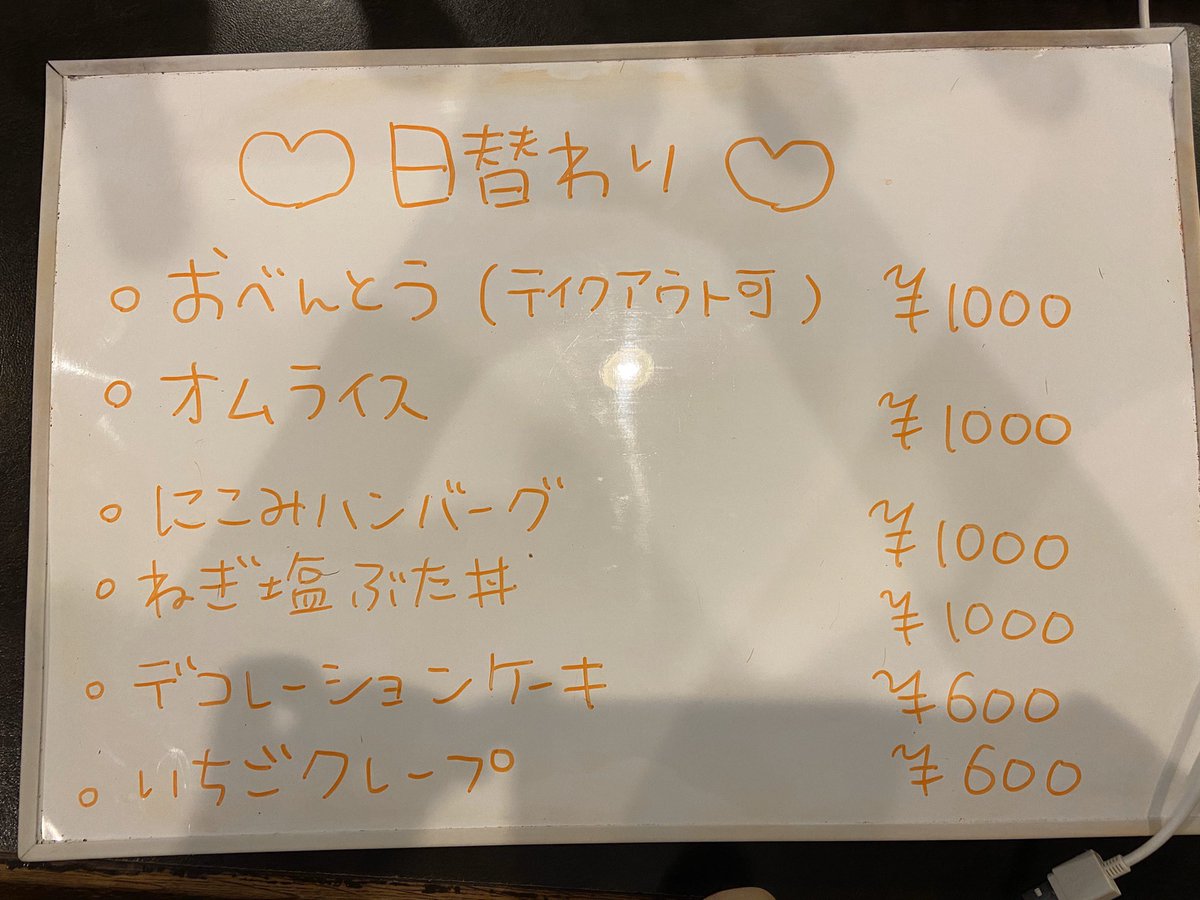 ♡日替わり♡
○おべんとう(テイクアウト可) ¥1000
○オムライス ¥1000
○にこみハンバーグ ¥1000
○ねぎ塩ぶた丼 ¥1000
○デコレーションケーキ ¥600
○いちごクレープ ¥600